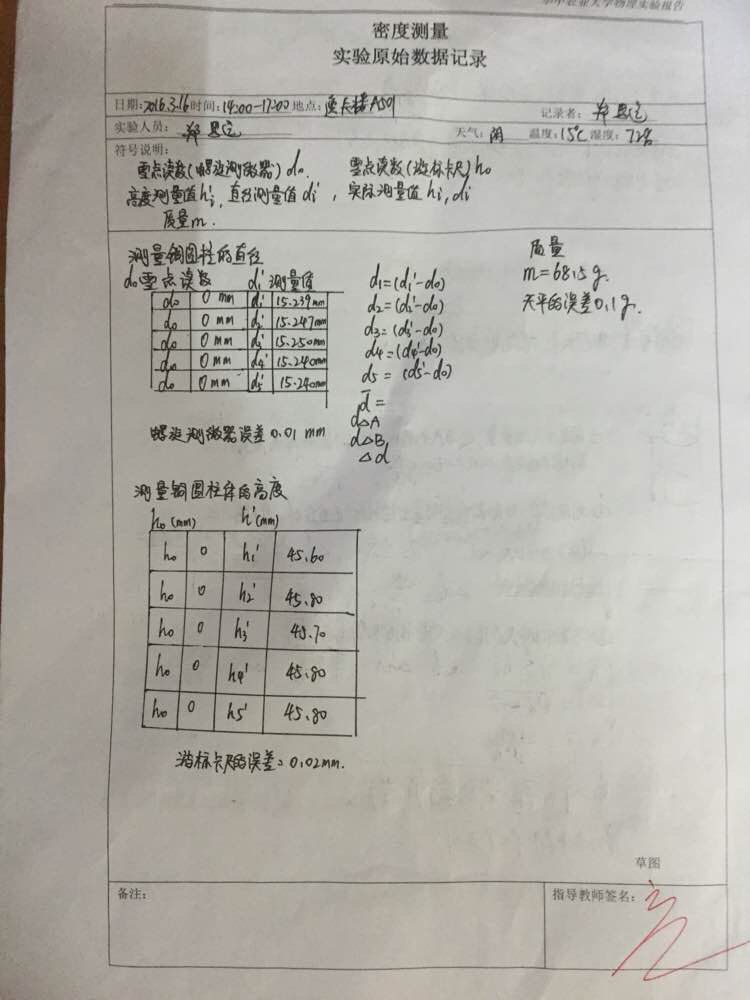 华中农业大学物理实验报告
密度测量
实验原始数据记录
日期:2016.3.16 时间:14:00—17:00 地点: A501 记录者: 郑
实验人员: 郑 天气: 阴 温度: 15℃ 湿度: 72%
符号说明:
零点读数(螺旋测微器) d₀. 零点读数(游标卡尺) h₀
高度测量值 hᵢ', 直径测量值 dᵢ', 实际测量值 hᵢ, dᵢ
质量 m.
测量铜圆柱的直径
d₀零点读数 dᵢ' 测量值
d₀ 0 mm d₁' 15.239mm
d₀ 0 mm d₂' 15.247mm
d₀ 0 mm d₃' 15.250mm
d₀ 0 mm d₄' 15.240mm
d₀ 0 mm d₅' 15.240mm
d₁=(d₁'-d₀)
d₂=(d₂'-d₀)
d₃=(d₃'-d₀)
d₄=(d₄'-d₀)
d₅= (d₅'-d₀)
d̄ =
d△A
d△B
△d
质量
m=68.5g.
天平的误差0.1g.
螺旋测微器误差0.01 mm
测量铜圆柱体的高度
h₀(mm) h'(mm)
h₀ 0 h₁' 45.60
h₀ 0 h₂' 45.80
h₀ 0 h₃' 45.70
h₀ 0 h₄' 45.80
h₀ 0 h₅' 45.80
游标卡尺的误差=0.02mm.
草图
备注:
指导教师签名: